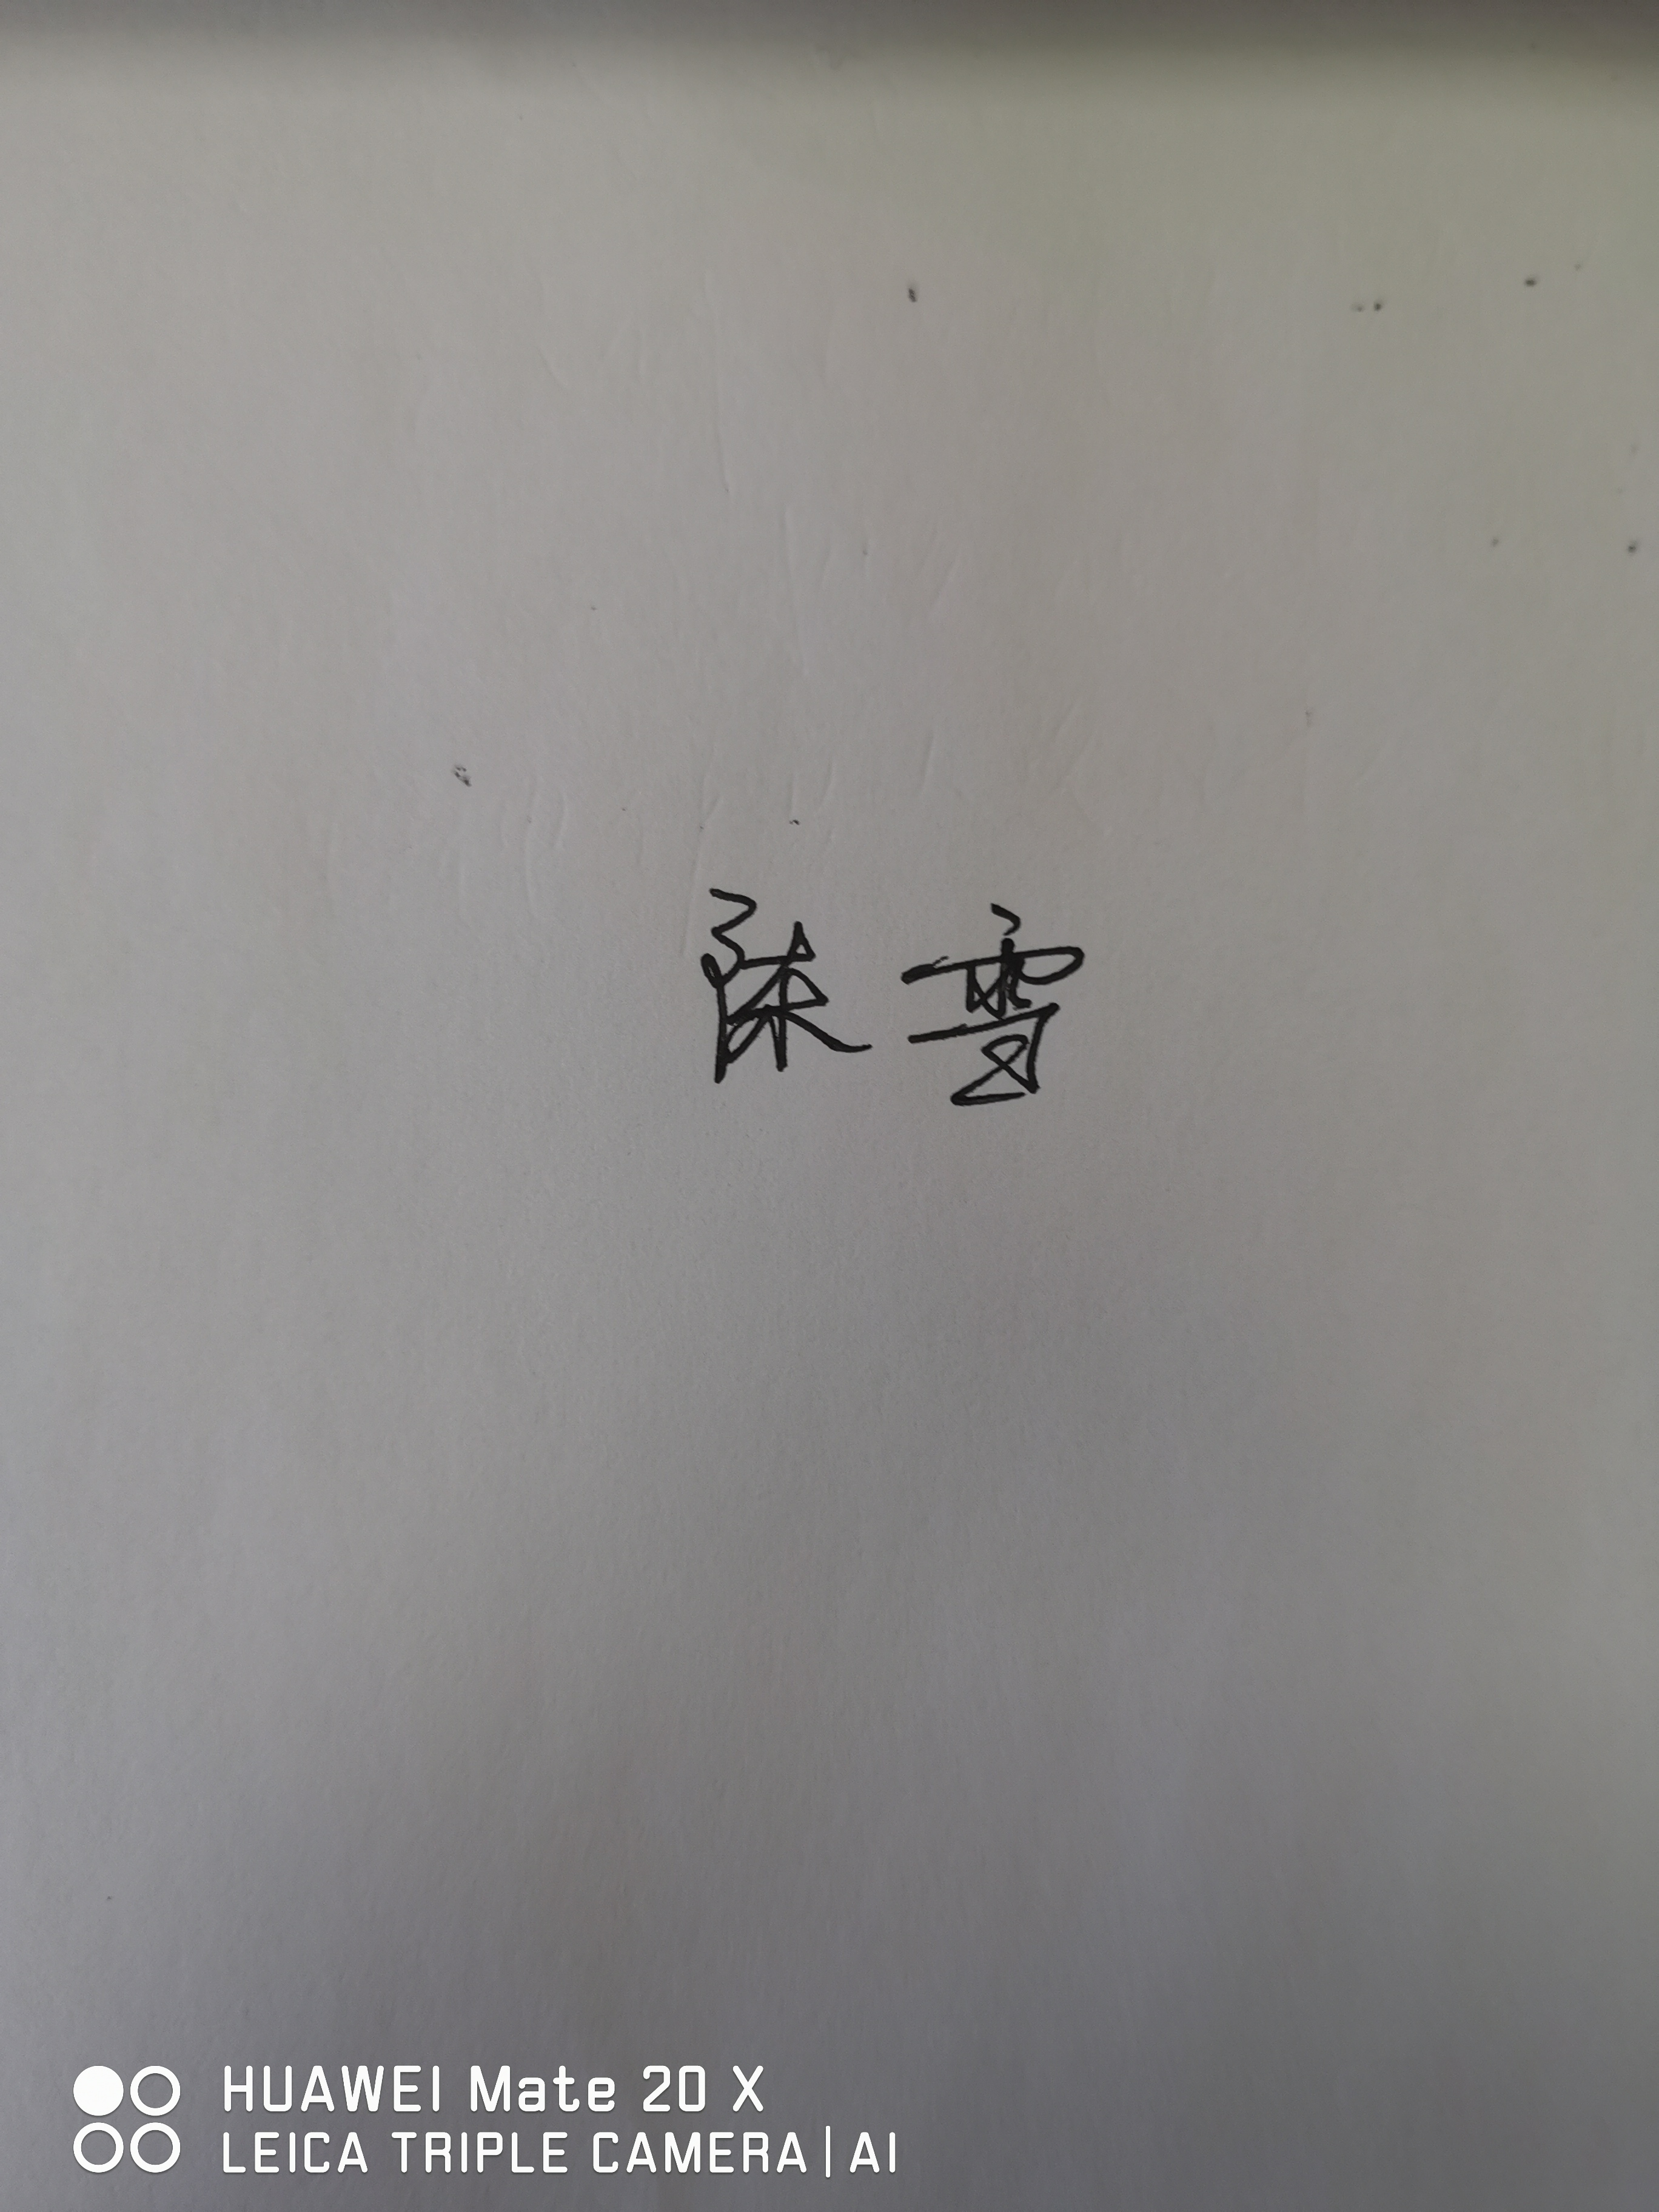 陈雪
HUAWEI Mate 20 X
LEICA TRIPLE CAMERA | AI